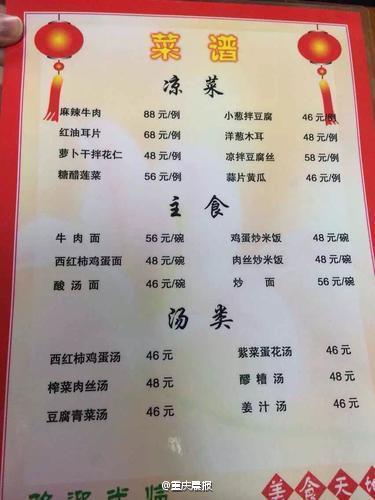 菜谱
凉菜
麻辣牛肉 88 元/例 小葱拌豆腐 46 元/例
红油耳片 68 元/例 洋葱木耳 48 元/例
萝卜干拌花仁 48 元/例 凉拌豆腐丝 58 元/例
糖醋莲菜 56 元/例 蒜片黄瓜 46 元/例
主食
牛肉面 56 元/碗 鸡蛋炒米饭 48 元/碗
西红柿鸡蛋面 48 元/碗 肉丝炒米饭 48 元/碗
酸汤面 46 元/碗 炒面 56 元/碗
汤类
西红柿鸡蛋汤 46 元 紫菜蛋花汤 46 元
榨菜肉丝汤 48 元 醪糟汤 48 元
豆腐青菜汤 46 元 姜汁汤 46 元
欢迎光临 美食天地
@重庆晨报